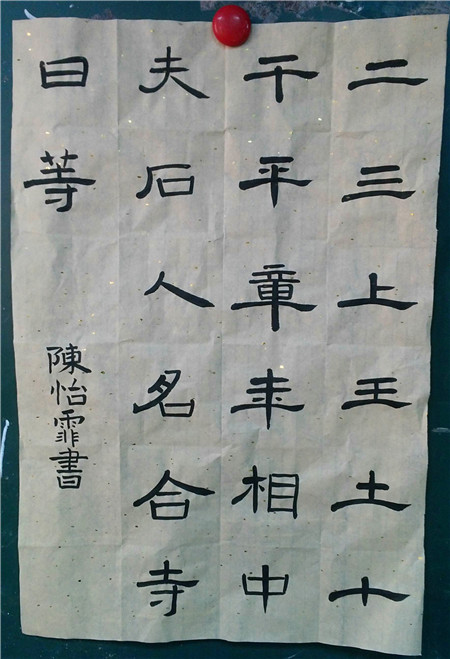 二三上王土十
干平章年相中
夫石人名合寺
曰等
陳怡霏書